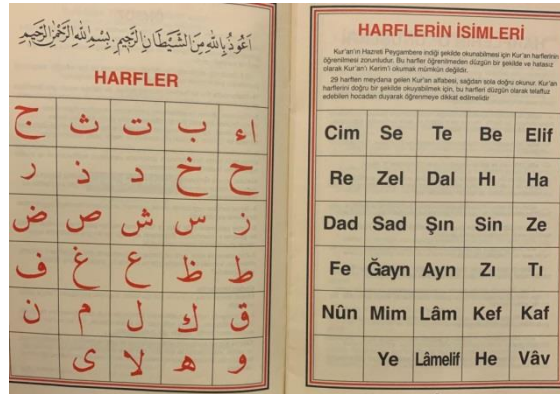 اَعُوذُ بِاللّٰهِ مِنَ الشَّيْطَانِ الرَّجِيمِ بِسْمِ اللّٰهِ الرَّحْمٰنِ الرَّحِيمِ
HARFLER
اء ب ت ث ج
ح خ د ذ ر
ز س ش ص ض
ط ظ ع غ ف
ق ك ل م ن
و ه لا ى
HARFLERİN İSİMLERİ
Kur'an'ın Hazreti Peygambere indiği şekilde okunabilmesi için Kur'an harflerinin
öğrenilmesi zorunludur. Bu harfler öğrenilmeden düzgün bir şekilde ve hatasız
olarak Kur'an'ı Kerim'i okumak mümkün değildir.
29 harften meydana gelen Kur'an alfabesi, sağdan sola doğru okunur. Kur'an
harflerini doğru bir şekilde okuyabilmek için, bu harfleri düzgün olarak telaffuz
edebilen hocadan duyarak öğrenmeye dikkat edilmelidir.
Cim Se Te Be Elif
Re Zel Dal Hı Ha
Dad Sad Şın Sin Ze
Fe Ğayn Ayn Zı Tı
Nûn Mim Lâm Kef Kaf
Ye Lâmelif He Vâv